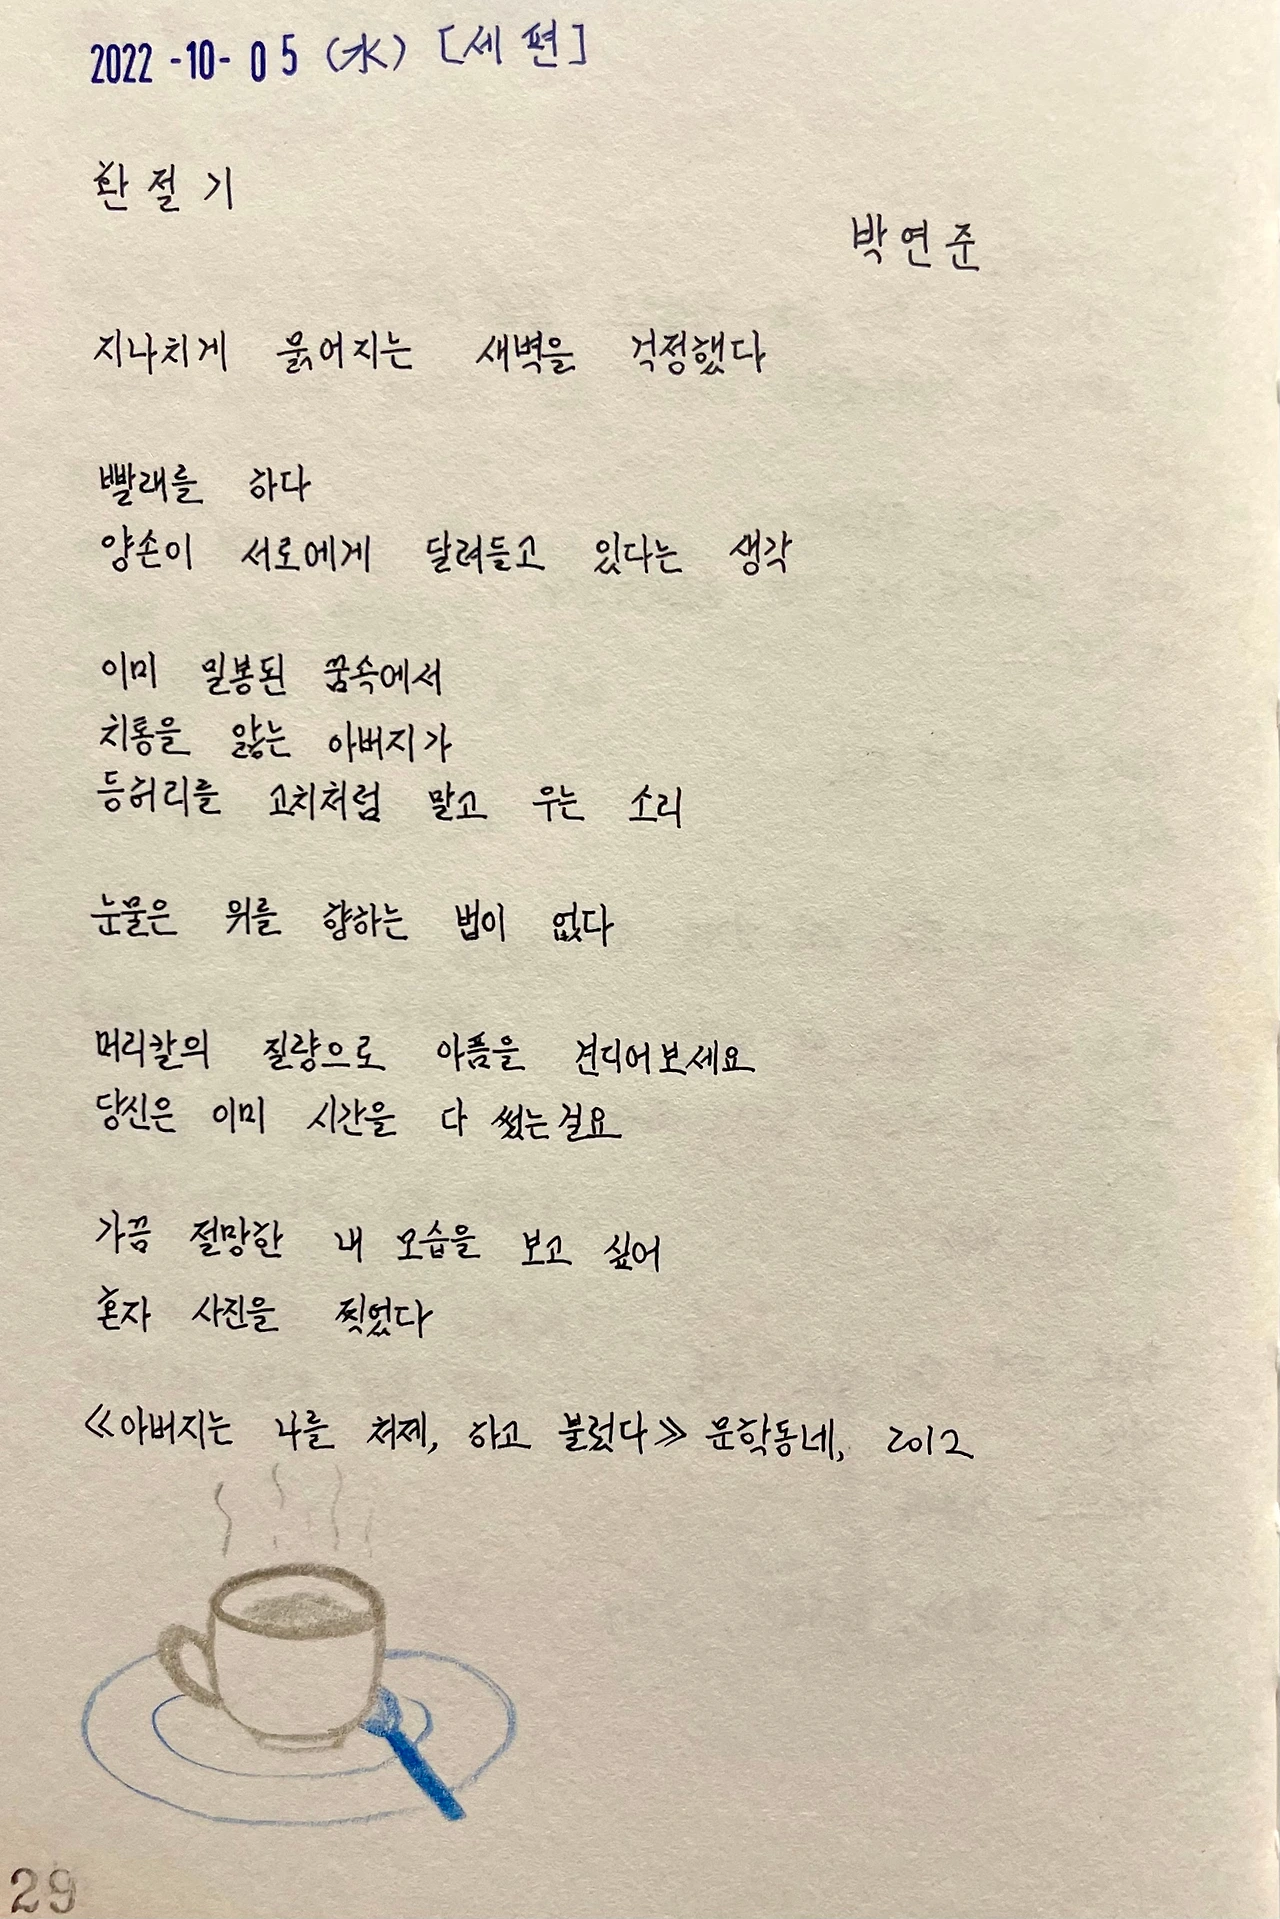 2022-10-05 (水) [세 편]
환절기
박연준
지나치게 묽어지는 새벽을 걱정했다
빨래를 하다
양손이 서로에게 달려들고 있다는 생각
이미 밀봉된 꿈속에서
치통을 앓는 아버지가
등허리를 고치처럼 말고 우는 소리
눈물은 위를 향하는 법이 없다
머리칼의 질량으로 아픔을 견디어보세요
당신은 이미 시간을 다 썼는걸요
가끔 절망한 내 모습을 보고 싶어
혼자 사진을 찍었다
≪아버지는 나를 처제, 하고 불렀다≫ 문학동네, 2012
29